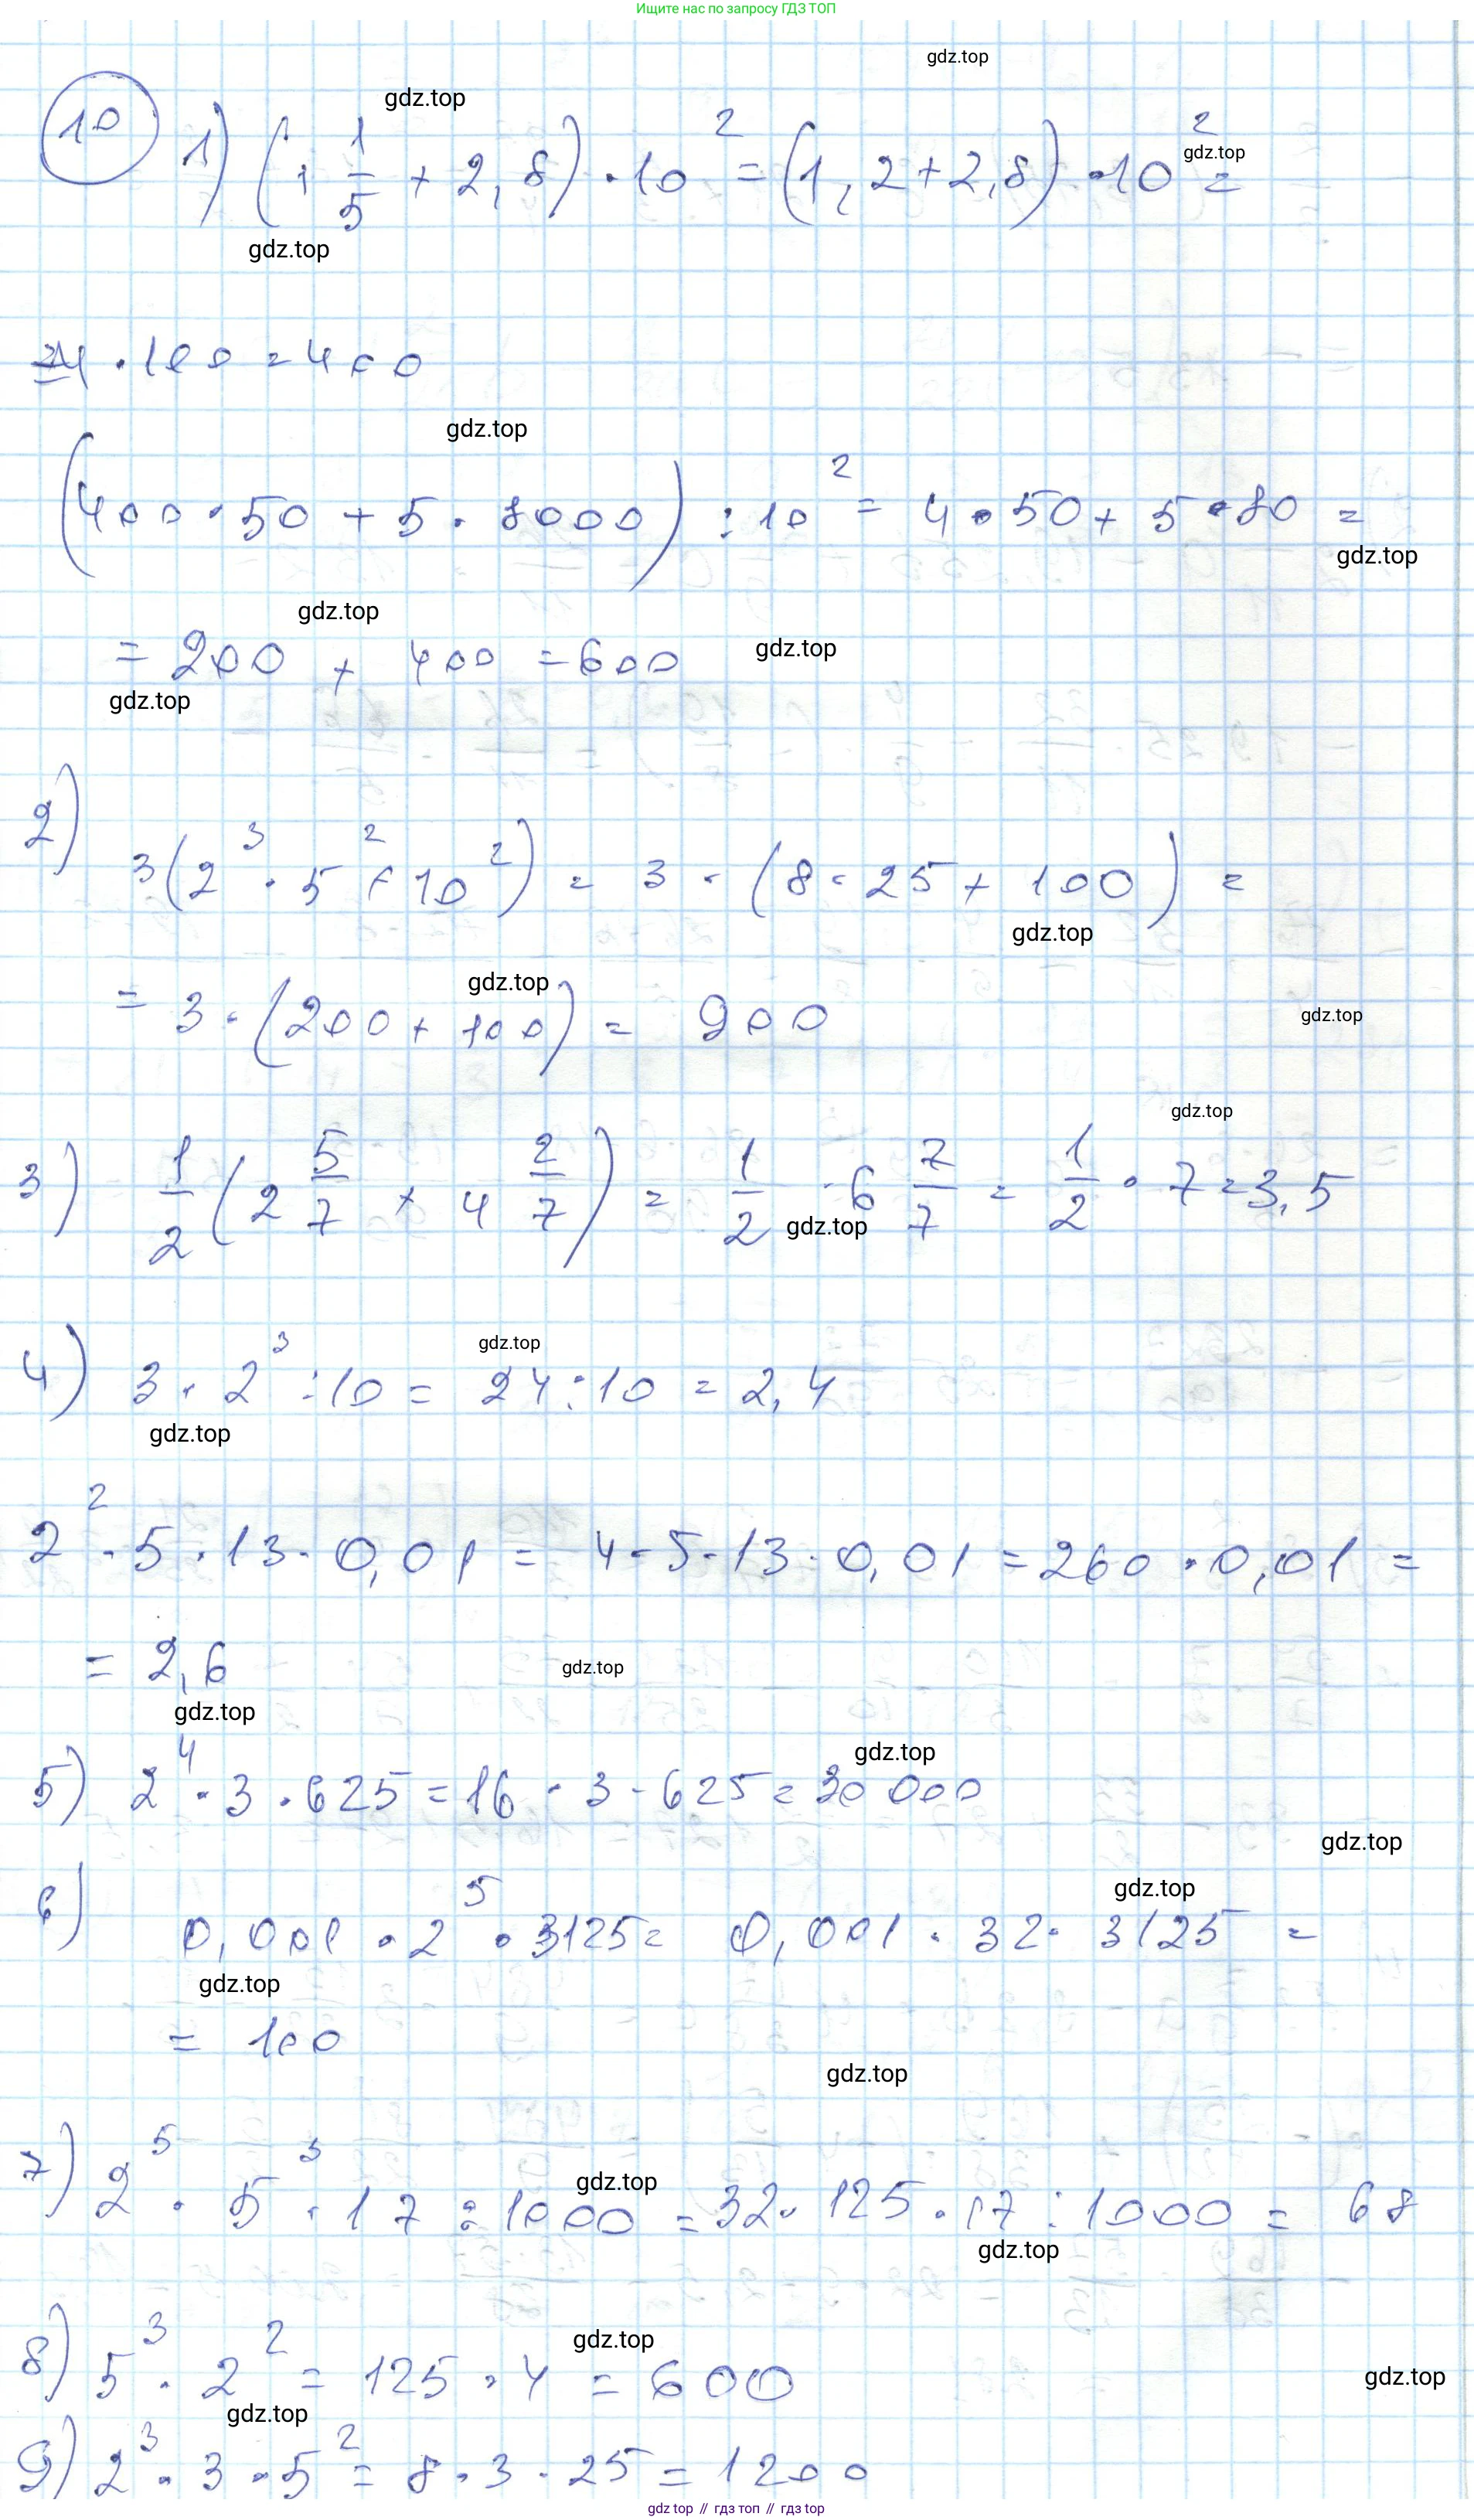 Ищите нас по запросу ГДЗ ТОП
gdz.top
gdz.top
10 1) (1 1/5 + 2,8) · 10² = (1,2 + 2,8) · 10² =
gdz.top
gdz.top
4 · 100 = 400
gdz.top
(400 · 50 + 5 · 8000) : 10² = 4 · 50 + 5 · 80 =
gdz.top
gdz.top
= 200 + 400 = 600
gdz.top
gdz.top
2) 3(2³ · 5² + 10²) = 3 · (8 · 25 + 100) =
gdz.top
gdz.top
= 3 · (200 + 100) = 900
gdz.top
gdz.top
3) 1/2 (2 5/7 + 4 2/7) = 1/2 · 6 7/7 = 1/2 · 7 = 3,5
gdz.top
gdz.top
4) 3 · 2³ : 10 = 24 : 10 = 2,4
gdz.top
2² · 5 · 13 · 0,01 = 4 · 5 · 13 · 0,01 = 260 · 0,01 =
= 2,6
gdz.top
gdz.top
gdz.top
5) 2⁴ · 3 · 625 = 16 · 3 · 625 = 30 000
gdz.top
gdz.top
6) 0,001 · 2⁵ · 3125 = 0,001 · 32 · 3125 =
gdz.top
= 100
gdz.top
7) 2⁵ · 5³ · 17 : 1000 = 32 · 125 · 17 : 1000 = 68
gdz.top
gdz.top
gdz.top
8) 5³ · 2² = 125 · 4 = 600
gdz.top
gdz.top
9) 2³ · 3 · 5² = 8 · 3 · 25 = 1200
gdz top // гдз топ // гдз top